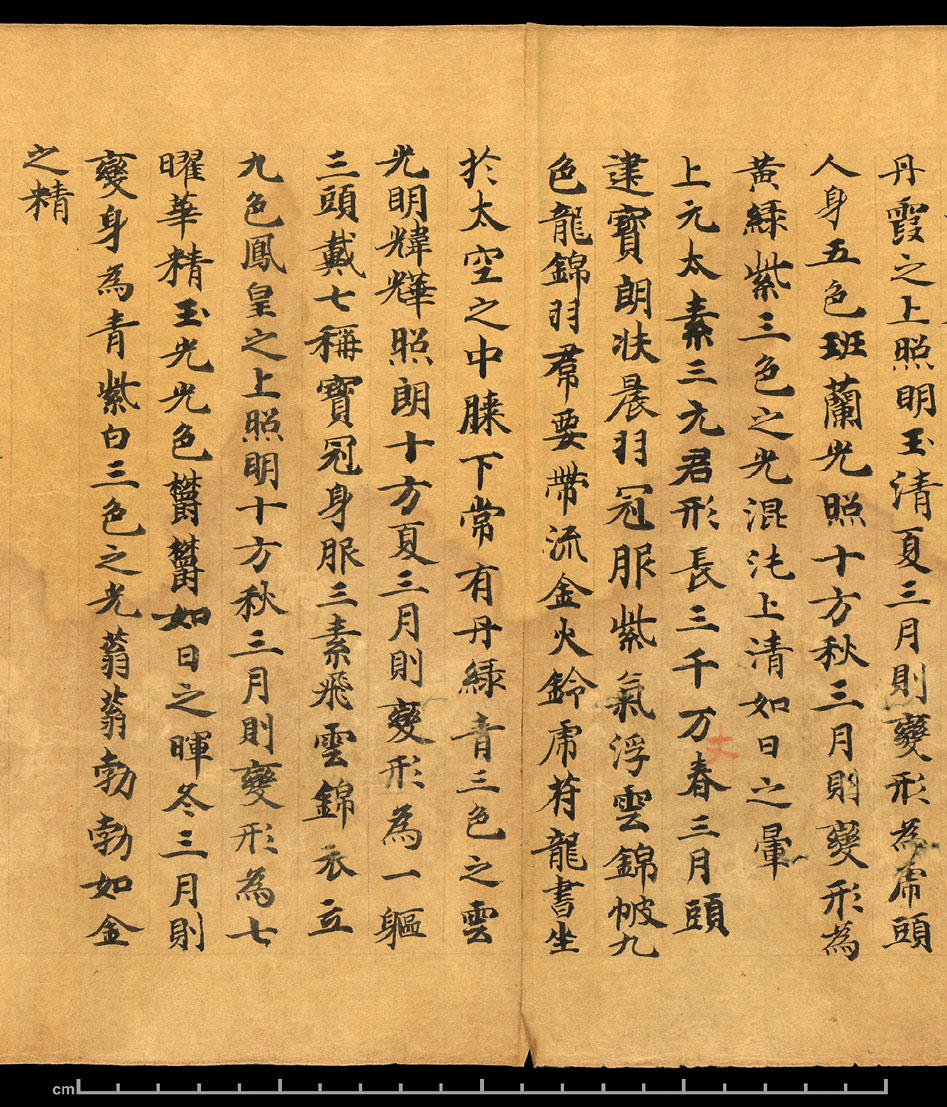 丹霞之上照明玉清夏三月則變形為虎頭
人身五色班蘭光照十方秋三月則變形為
黃綠紫三色之光混沌上清如日之暈
上元太素三元君形長三千万春三月頭
丈
建寶朗扶晨羽冠服紫氣浮雲錦帔九
色龍錦羽帬要帶流金火鈴虎苻龍書坐
於太空之中膝下常有丹綠青三色之雲
光明煒燁照朗十方夏三月則變形為一軀
三頭戴七稱寶冠身服三素飛雲錦衣立
九色鳳皇之上照明十方秋三月則變形為七
曜華精玉光光色欝欝如日之暉冬三月則
變身為青紫白三色之光蓊蓊勃勃如金
之精
cm